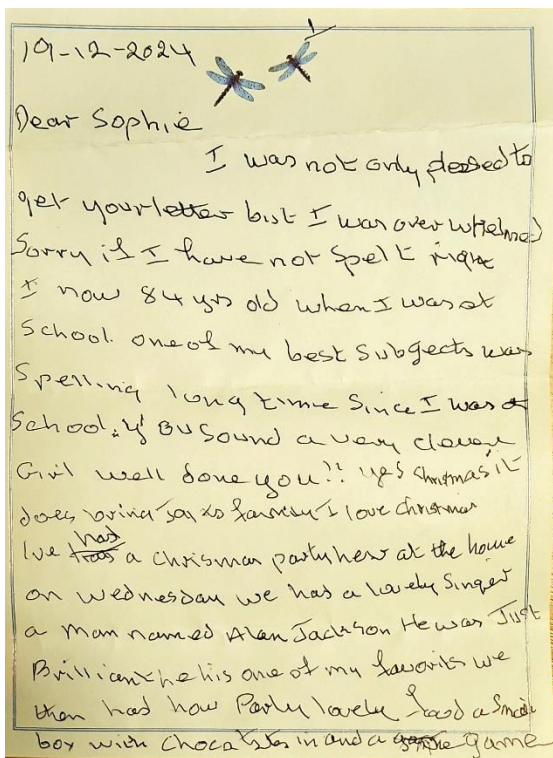 19-12-2024
Dear Sophie
I was not only pleased to
get your letter but I was over whelmed
Sorry if I have not Spelt right
I now 84 yrs old when I was at
School one of my best Subgects was
Spelling long time Since I was at
School. You Sound a very clever
Girl well done you!! yes Chrismas it
does bring Joy to family I love Chrismas
Ive had a chrismas party here at the home
on wednesday we has a lovely Singer
a man named Alan Jackson He was Just
Brilliant he his one of my favorits we
then had how Party lovely food a Small
box with chocalates in and a game